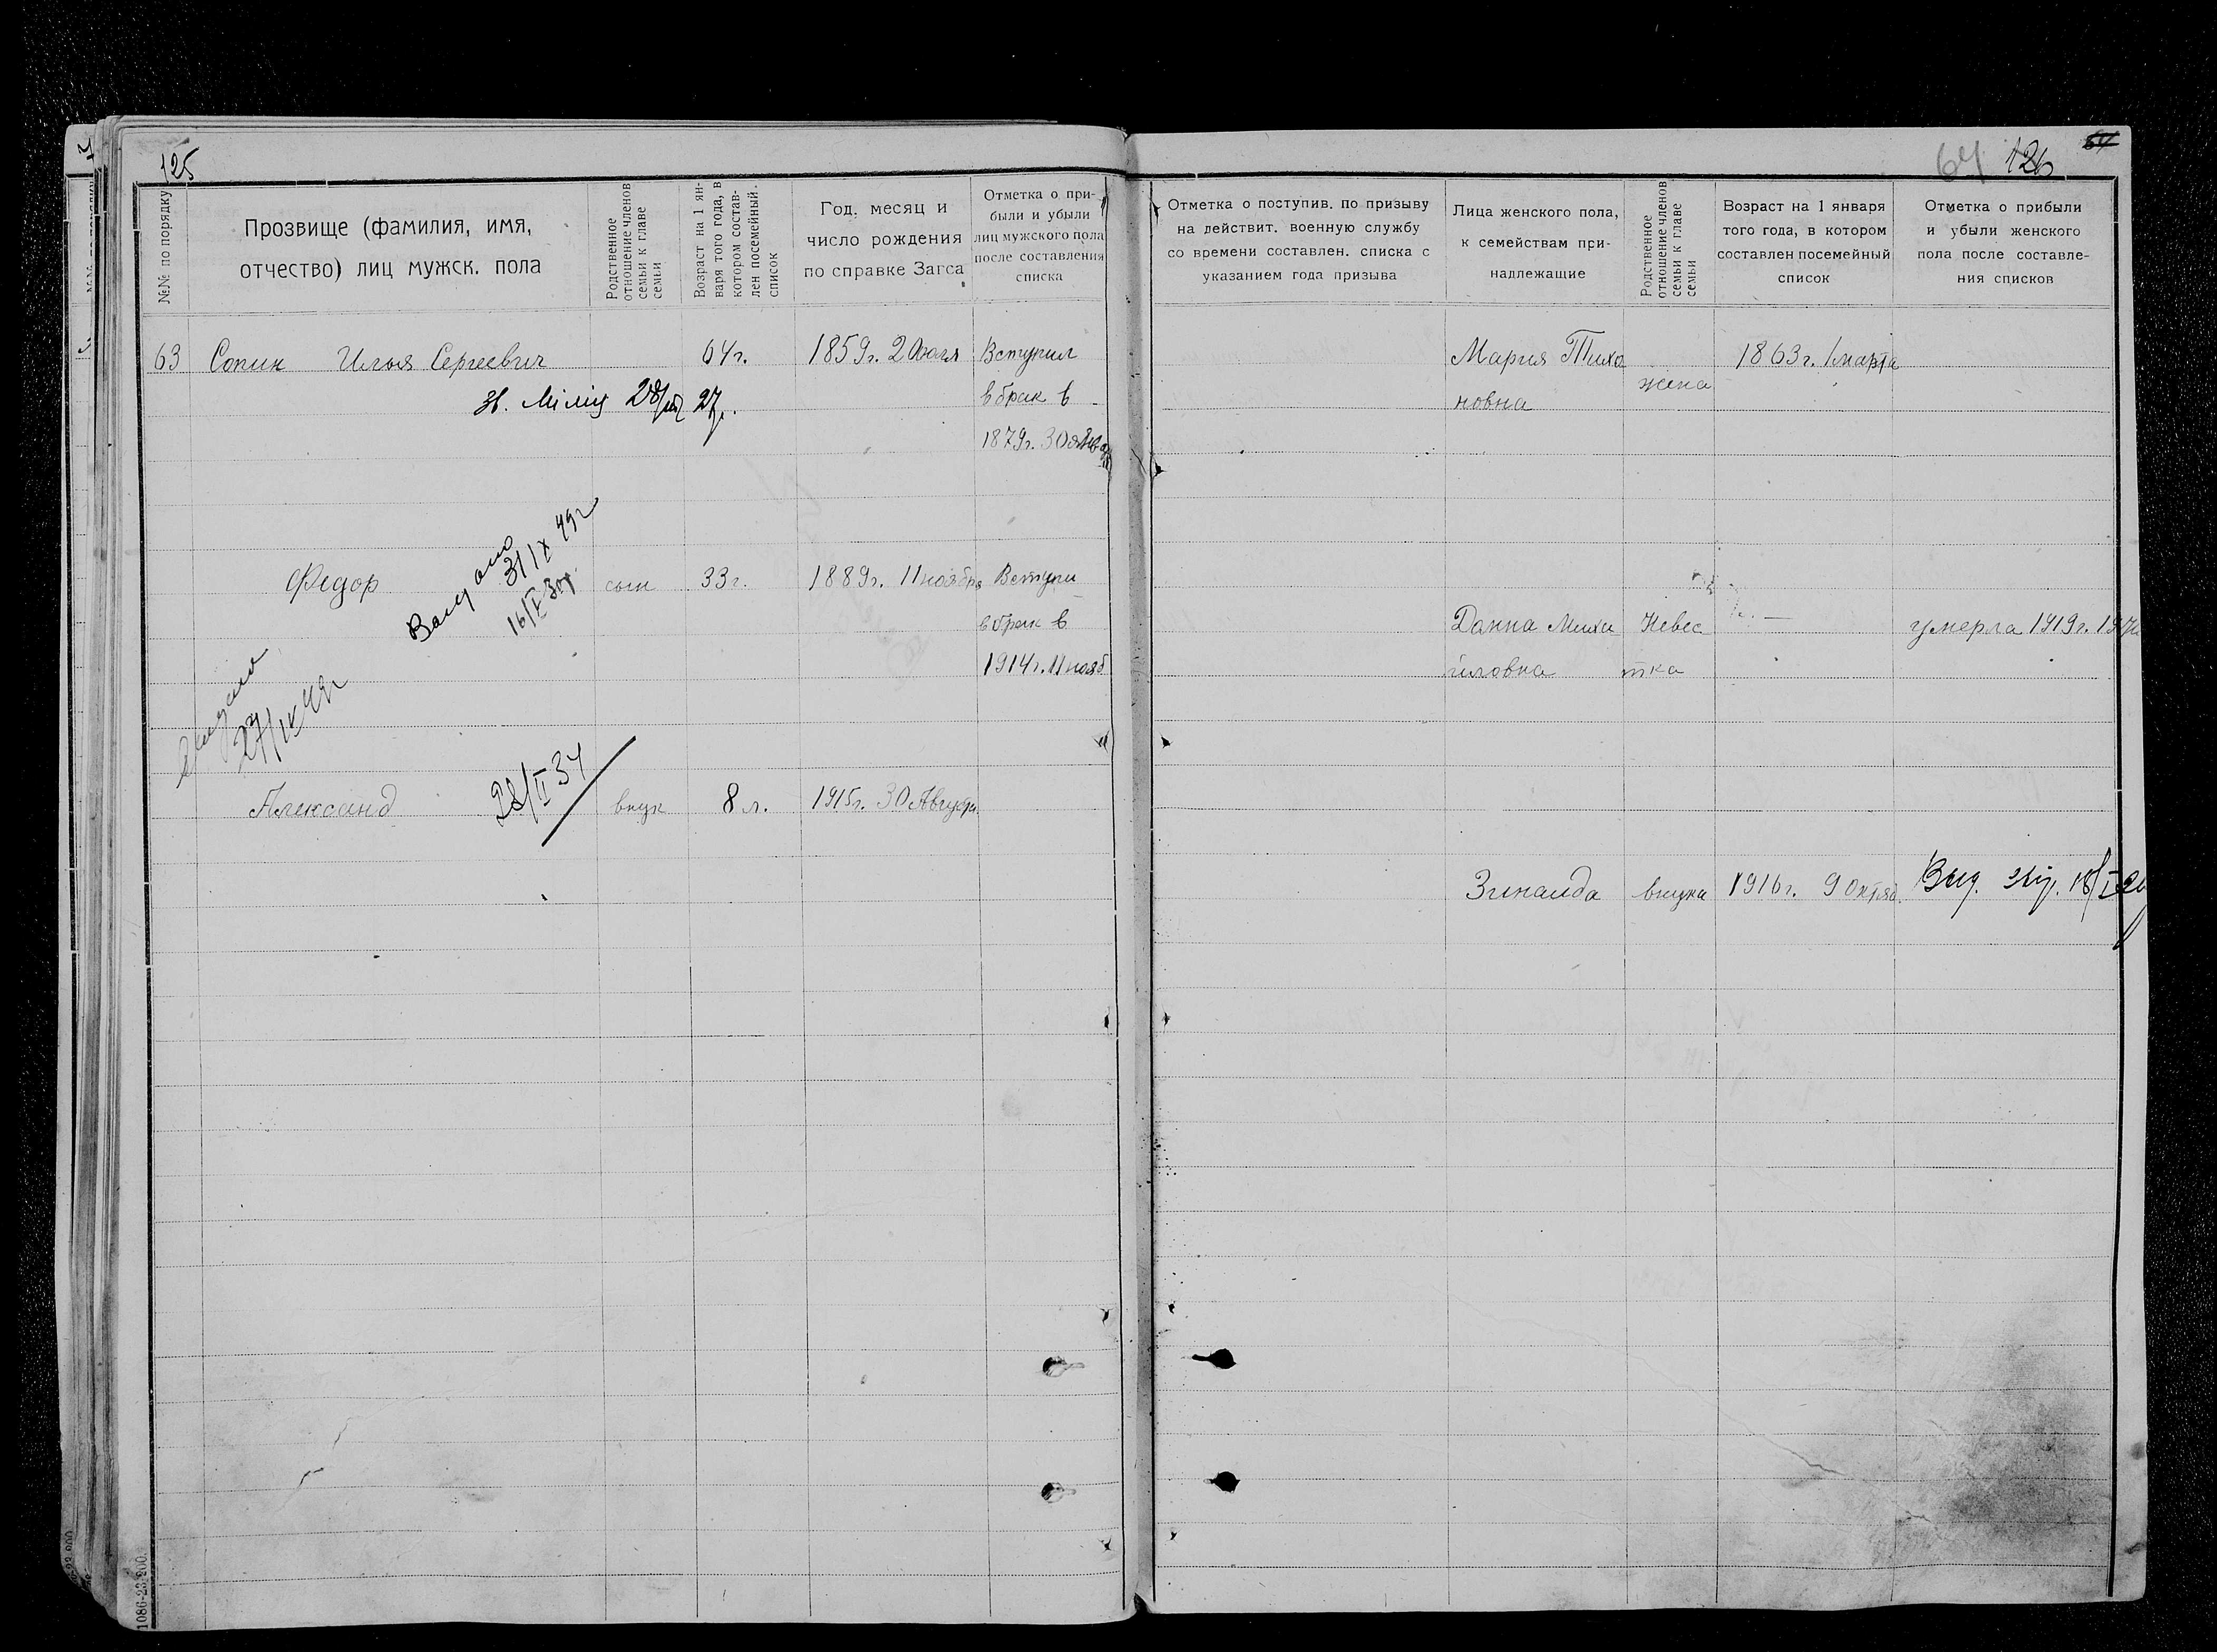 125
64 126
64
№№ по порядку
Прозвище (фамилия, имя,
отчество) лиц мужск. пола
Родственное
отношение членов
семьи к главе
семьи
Возраст на 1 ян-
варя того года, в
котором состав-
лен посемейный
список
Год, месяц и
число рождения
по справке Загса
Отметка о при-
были и убыли
лиц мужского пола
после составления
списка
Отметка о поступив. по призыву
на действит. военную службу
со времени составлен. списка с
указанием года призыва
Лица женского пола,
к семействам при-
надлежащие
Родственное
отношение членов
семьи к главе
семьи
Возраст на 1 января
того года, в котором
составлен посемейный
список
Отметка о прибыли
и убыли женского
пола после составле-
ния списков
63 Сопин Илья Сергеевич 64г. 1859г. 20 Вступил
28/ 27
в брак в
1879г. 30 янв
Мария Тихо
новна
жена
1863г. 1 марта
31/IX 49г
Федор сын 33г. 1889г. 11 ноября Вступи
в брак в
1914г. 11 нояб
Домна Михи Невес умерла 1919г.
йловна тка
27/IX 49г
28/II 34
Александ внук 8 л. 1915г. 30 Августа
Зинаида внучка 1916г. 9 Октяб. Выд.
1086-23 200.